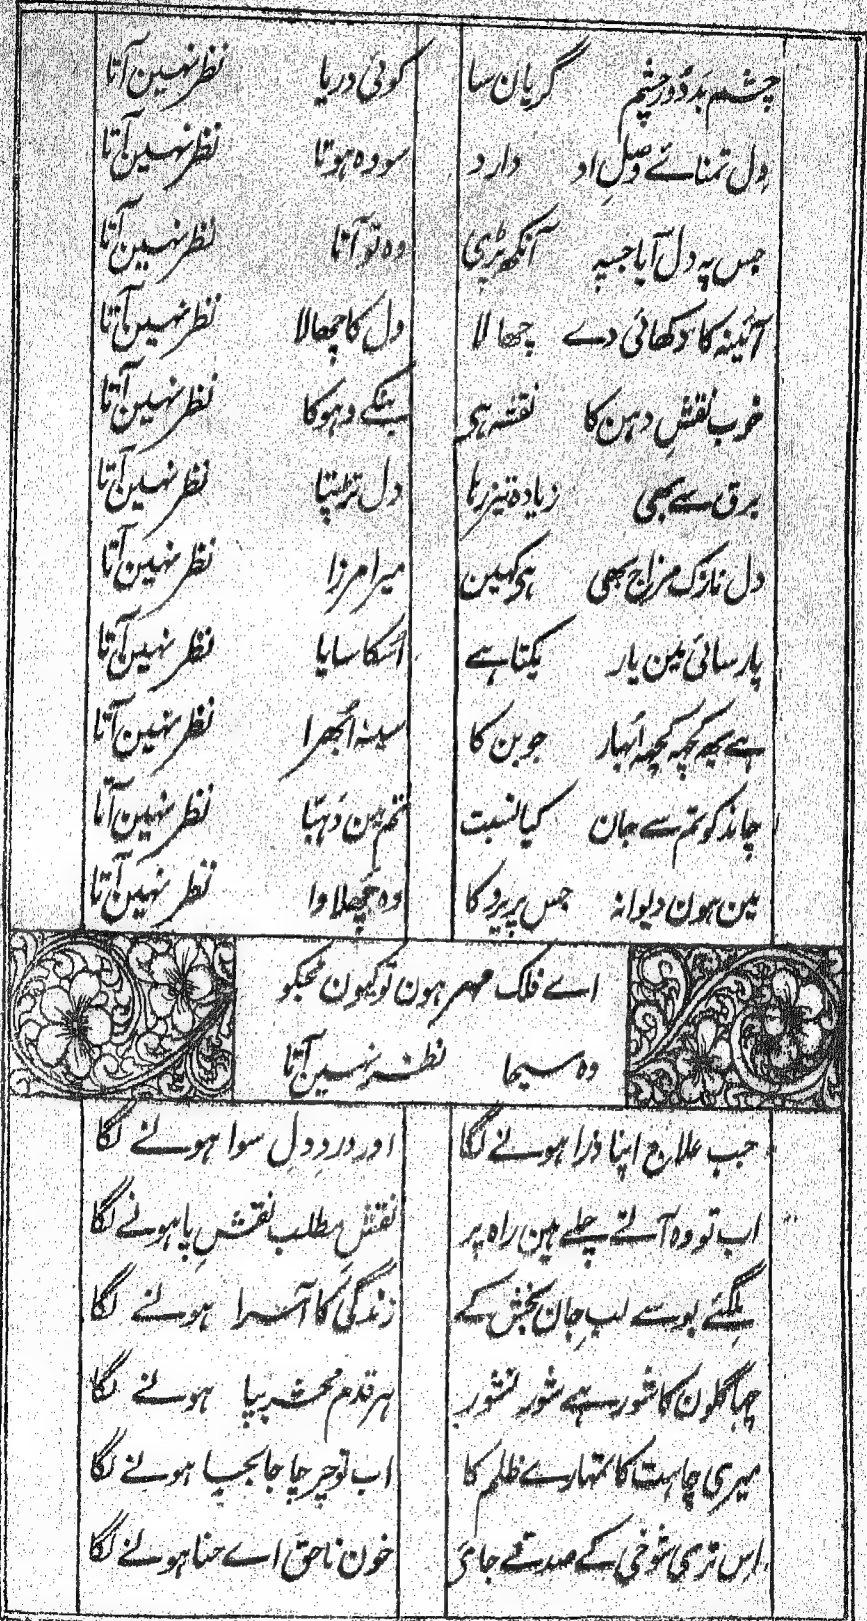 چشم بد دور چشم گریان سا کوئی دریا نظر نہین آتا
دل تمنائے وصلِ او دارد سو وہ ہوتا نظر نہین آتا
جس پہ دل آیا جسپہ آنکھ پڑی وہ تو آتا نظر نہین آتا
آئینہ کا دکھائی دے چھالا دل کا چھالا نظر نہین آتا
خوب نقشِ دہن کا نقشہ ہی بنکے دہوکا نظر نہین آتا
برق سے بھی زیادہ تیز رہا دل تڑپتا نظر نہین آتا
دل نازک مزاج بھی ہی کہین میرا مرزا نظر نہین آتا
پارسائی مین یار یکتا ہے اسکا سایا نظر نہین آتا
ہے بچھ کچھ کچھ اُبہار جوبن کا سینہ اُبھرا نظر نہین آتا
چاند کو تم سے جان کیا نسبت تم مین دہبّا نظر نہین آتا
مین ہون دیوانہ جس پریرو کا وہ چھلاوا نظر نہین آتا
اے فلک مہر ہون تو کیون مجکو
وہ مسیحا نظر نہین آتا
جب علاج اپنا ذرا ہونے لگا اور دردِ دل سوا ہونے لگا
اب تو وہ آتے چلے ہین راہ پر نقشِ مطلب نقشِ پا ہونے لگا
ملگئے بوسے لبِ جان بخش کے زندگی کا آسرا ہونے لگا
چہاگلون کا شور ہے شور نشور ہر قدم محشر بپا ہونے لگا
میری چاہت کا تمہارے ظلم کا اب تو چرچا جا بجا ہونے لگا
اس تری شوخی کے صدقے جائی خون ناحق اے حنا ہونے لگا